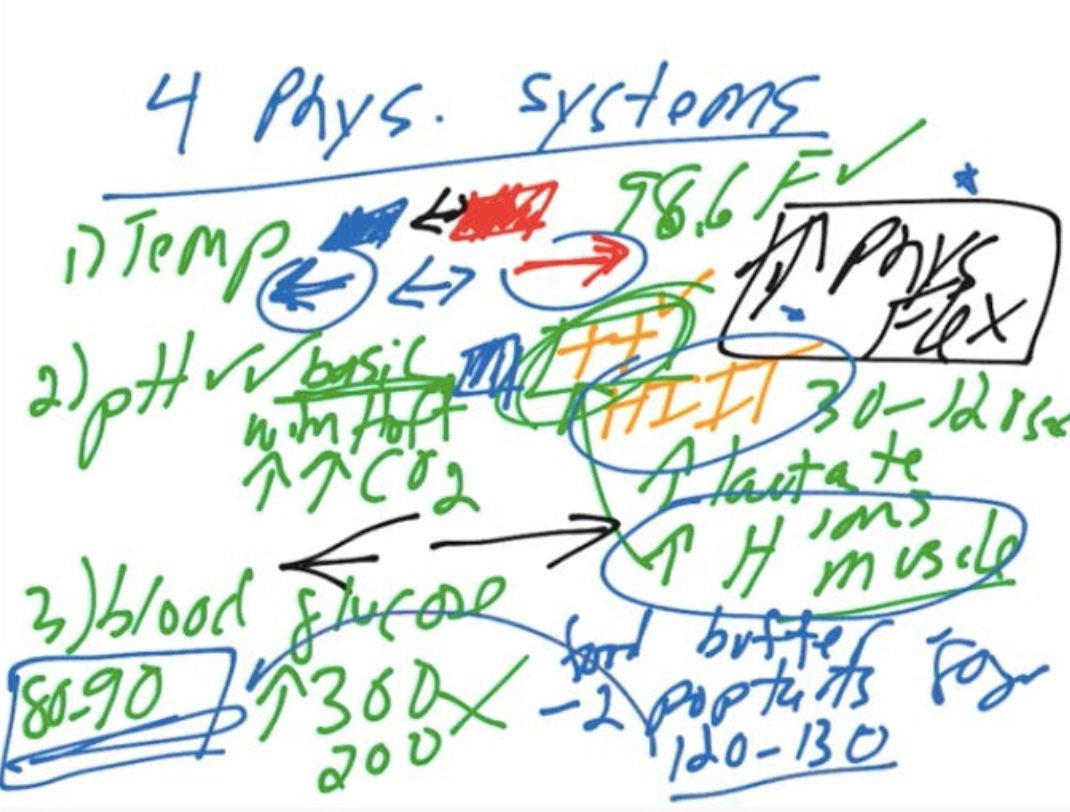 4 Phys. systems
1) Temp <-> 98.6 F ✓
← <-> →
↑↑ Phys
Flex
2) pH ✓✓ basic H+ ✓
wim Hoff
↑↑ CO2
HIIT 30-120 sec
↑ lactate
↑ H ions
muscle
3) blood glucose
80-90 ↑300 X
200
food buffer
-2 poptarts 80g
120-130